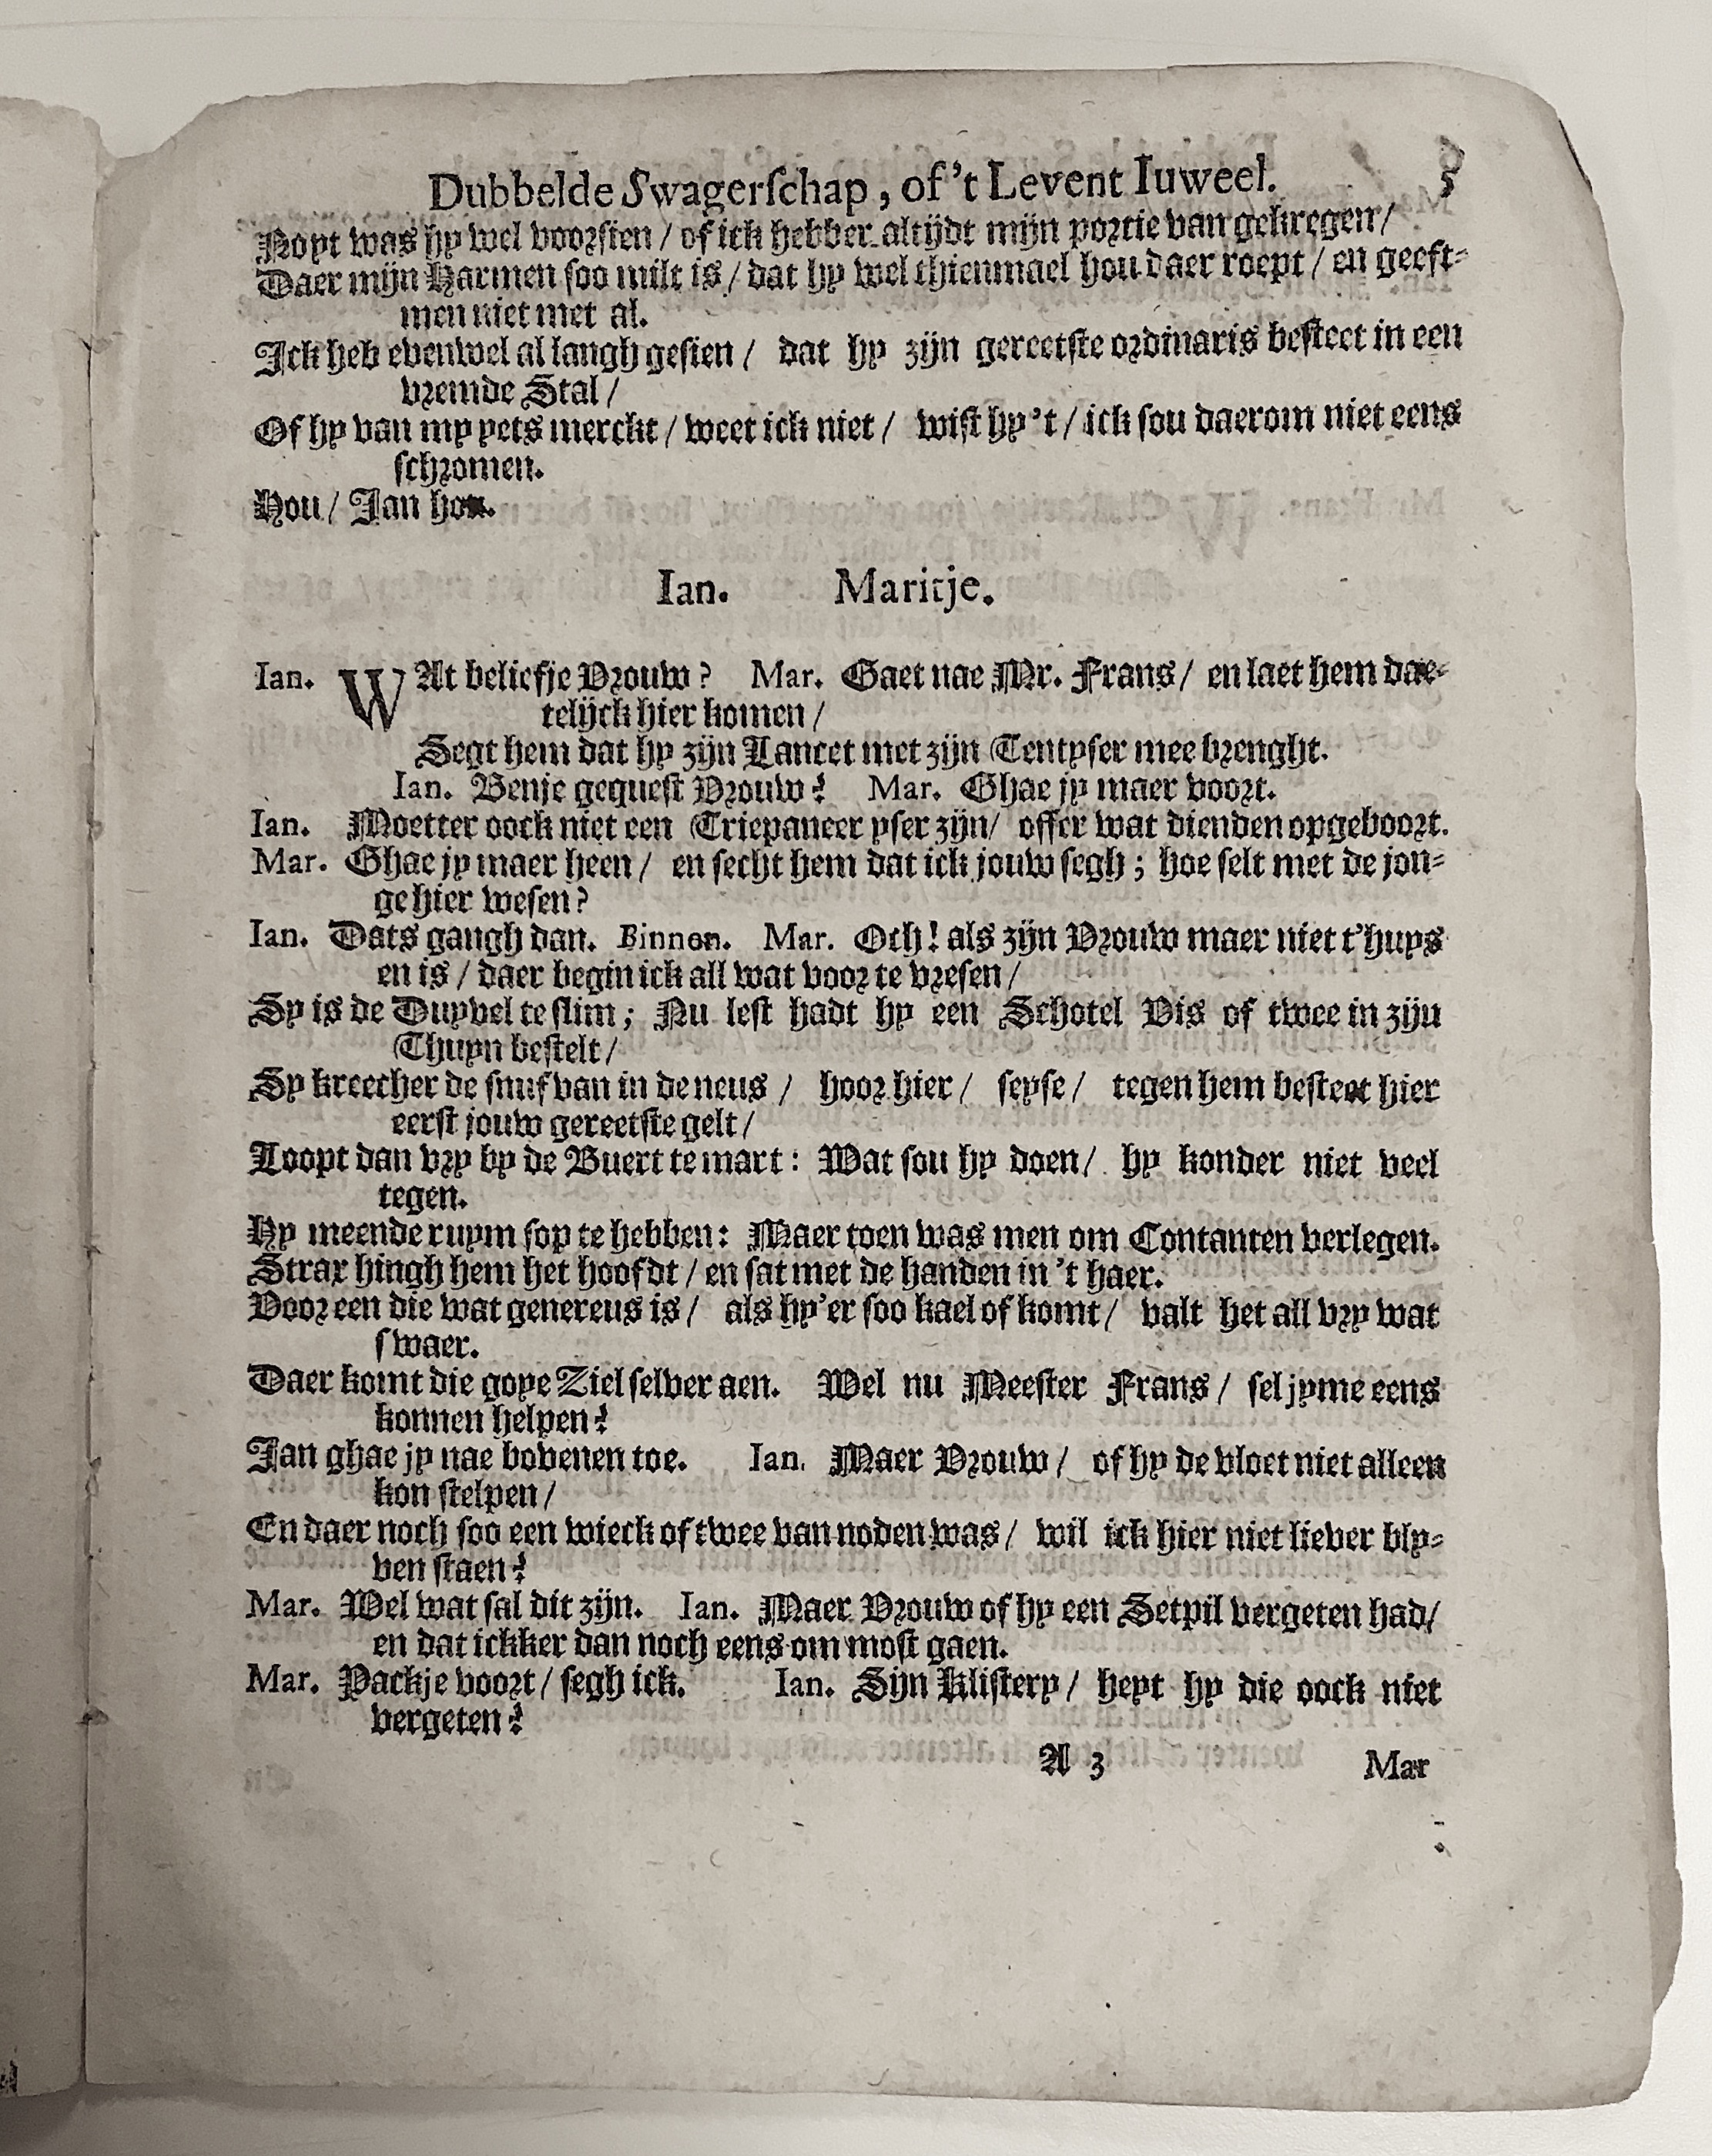 Dubbelde Swagerschap, of 't Levent Iuweel. 5
Noyt was hy wel voorsien / of ick hebber altijdt mijn portie van gekregen /
Daer mijn Harmen soo milt is / dat hy wel thienmael hou daer roept / en geeft-
men niet met al.
Ick heb evenwel al langh gesien / dat hy zijn gereetste ordinaris besteet in een
vremde Stal /
Of hy van my yets merckt / weet ick niet / wist hy 't / ick sou daerom niet eens
schromen.
Hou / Jan hou.
Ian. Maritje.
Ian. WAt beliefje Vrouw? Mar. Gaet nae Mr. Frans / en laet hem dae-
telijck hier komen /
Segt hem dat hy zijn Lancet met zijn Tentyser mee brenght.
Ian. Benje gequest Vrouw? Mar. Ghae jy maer voort.
Ian. Moetter oock niet een Triepaneer yser zijn / offer wat dienden opgeboort.
Mar. Ghae jy maer heen / en secht hem dat ick jouw segh; hoe selt met de jon-
ge hier wesen?
Ian. Dats gangh dan. Binnen. Mar. Och! als zijn Vrouw maer niet t'huys
en is / daer begin ick all wat voor te vresen /
Sy is de Duyvel te slim; Nu lest hadt hy een Schotel Vis of twee in zijn
Thuyn bestelt /
Sy kreecher de snuf van in de neus / hoor hier / seyse / tegen hem besteet hier
eerst jouw gereetste gelt /
Loopt dan vry by de Buert te mart: Wat sou hy doen / hy konder niet veel
tegen.
Hy meende ruym sop te hebben: Maer toen was men om Contanten verlegen.
Strax hingh hem het hoofdt / en sat met de handen in 't haer.
Voor een die wat genereus is / als hy'er soo kael of komt / valt het all vry wat
swaer.
Daer komt die goye Ziel selver aen. Wel nu Meester Frans / sel jyme eens
konnen helpen?
Jan ghae jy nae bovenen toe. Ian. Maer Vrouw / of hy de vloet niet alleen
kon stelpen /
En daer noch soo een wieck of twee van noden was / wil ick hier niet liever bly-
ven staen?
Mar. Wel wat sal dit zijn. Ian. Maer Vrouw of hy een Setpil vergeten had /
en dat ickker dan noch eens om most gaen.
Mar. Packje voort / segh ick. Ian. Sijn Klistery / heyt hy die oock niet
vergeten?
A 3 Mar